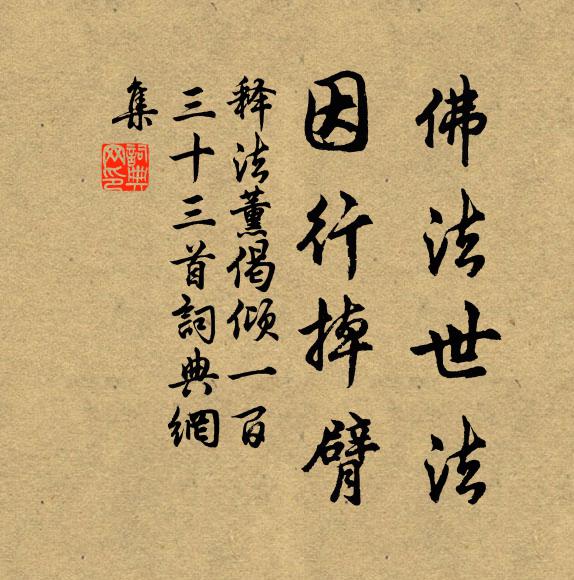 佛法世法
因行掉臂
释法薰偈倾一百
三十三首詞典網
集
詞典網印